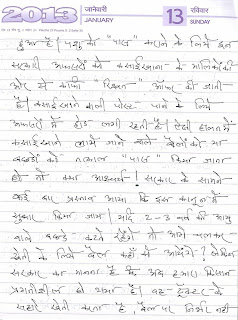 2013 जनवरी JANUARY 13 रविवार SUNDAY
हुआ है। पशु को "पास" कराने के लिये इन
सरकारी अफसरों को कसाईखाना के मालिकों की
ओर से काफी रिश्वत ऑफर की जाती
है। कसाईखाने वाली पोस्ट पाने के लिये
अफसरों में होड़ लगी रहती है। ऐसी हालत में
कसाईखाने लाये जाने वाले बैलों को या
बछड़ों को तत्काल "पास" किया जाता
हो तो क्या आश्चर्य! सरकार के सामने
कई बार प्रस्ताव आया कि इस कानून में
सुधार किया जाय। यदि 2-3 वर्ष की आयु
वाले बछड़े कटते रहेंगे तो आगे चलकर
खेती के लिये बैल कहाँ से आयेंगे? लेकिन
सरकार का मानना है कि अब हमारा किसान
प्रगतीशील हो गया है। वह ट्रैक्टर के
सहारे खेती करता है, बैल पर निर्भर नहीं